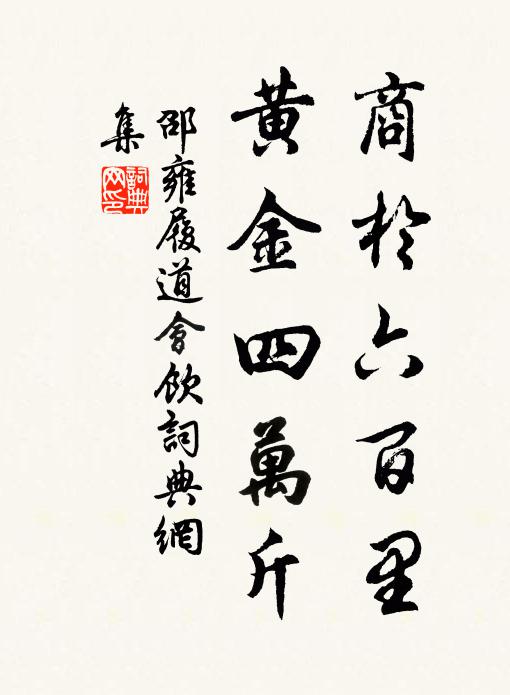 商於六百里
黃金四萬斤
邵雍履道會飲詞典網
集
詞典
网印